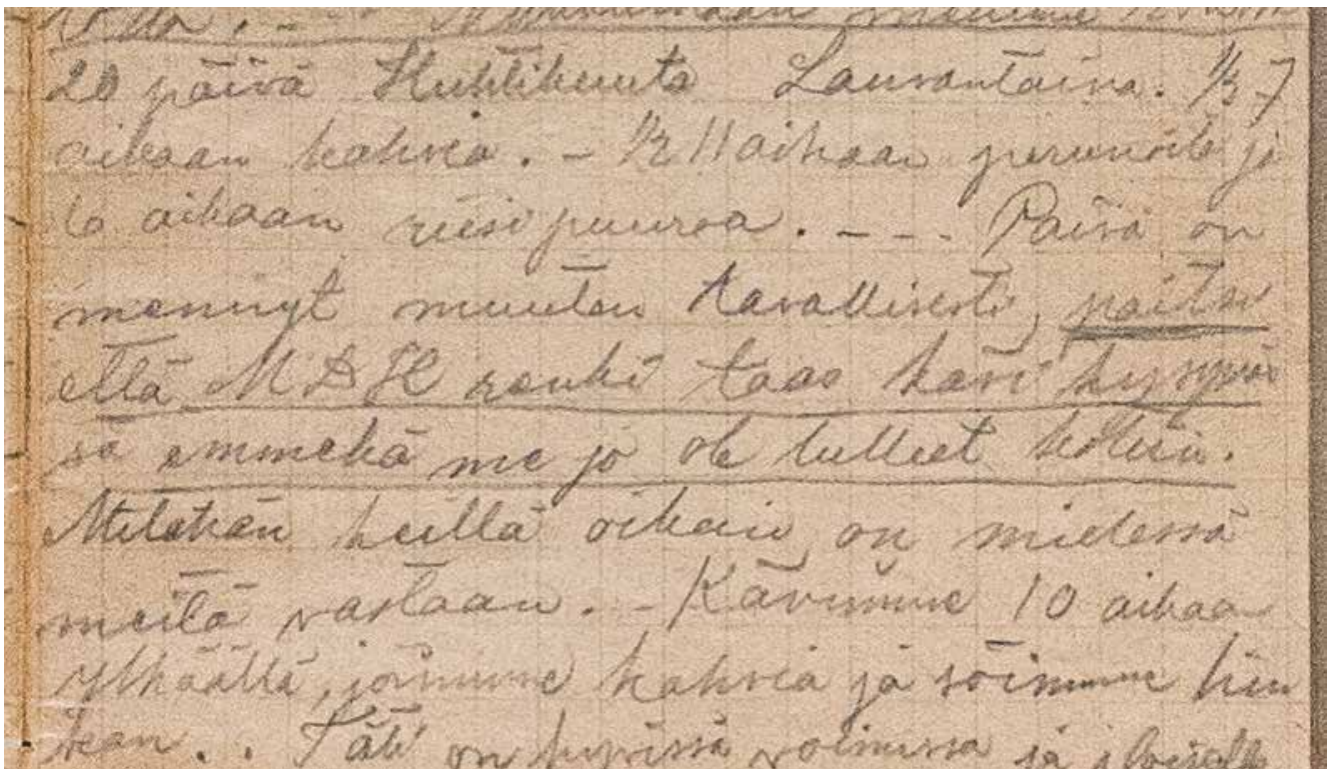 20 päivä Huhtikuuta Lauvantaina. 1/2 7
aikaan kahvia. - 1/2 11 aikaan perunoita ja
6 aikaan riisipuuroa. - - - Päivä on
mennyt muuten tavallisesti, paitsi
että M D H renki taas kävi kysymäs
sä emmekä me jo ole tulleet kotiin.
Mitähän heillä oikein on mielessä
meitä vastaan. - Kävimme 10 aikaa
ylhäällä, joimme kahvia ja söimme hiu
kan. . Täti on hyvissä voimissa ja